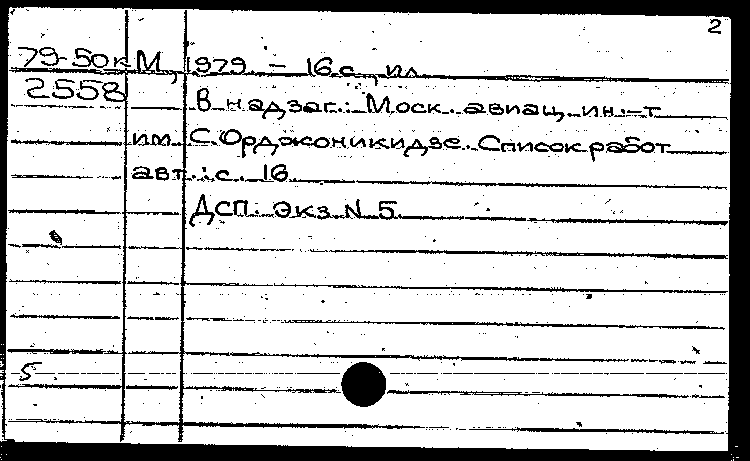 2
79-50к М., 1979. – 16 с., ил.
2558 В надзаг.: Моск. авиац. ин.-т
им. С. Орджоникидзе. Список работ
авт.: с. 16.
ДСП. Экз. N 5.
5